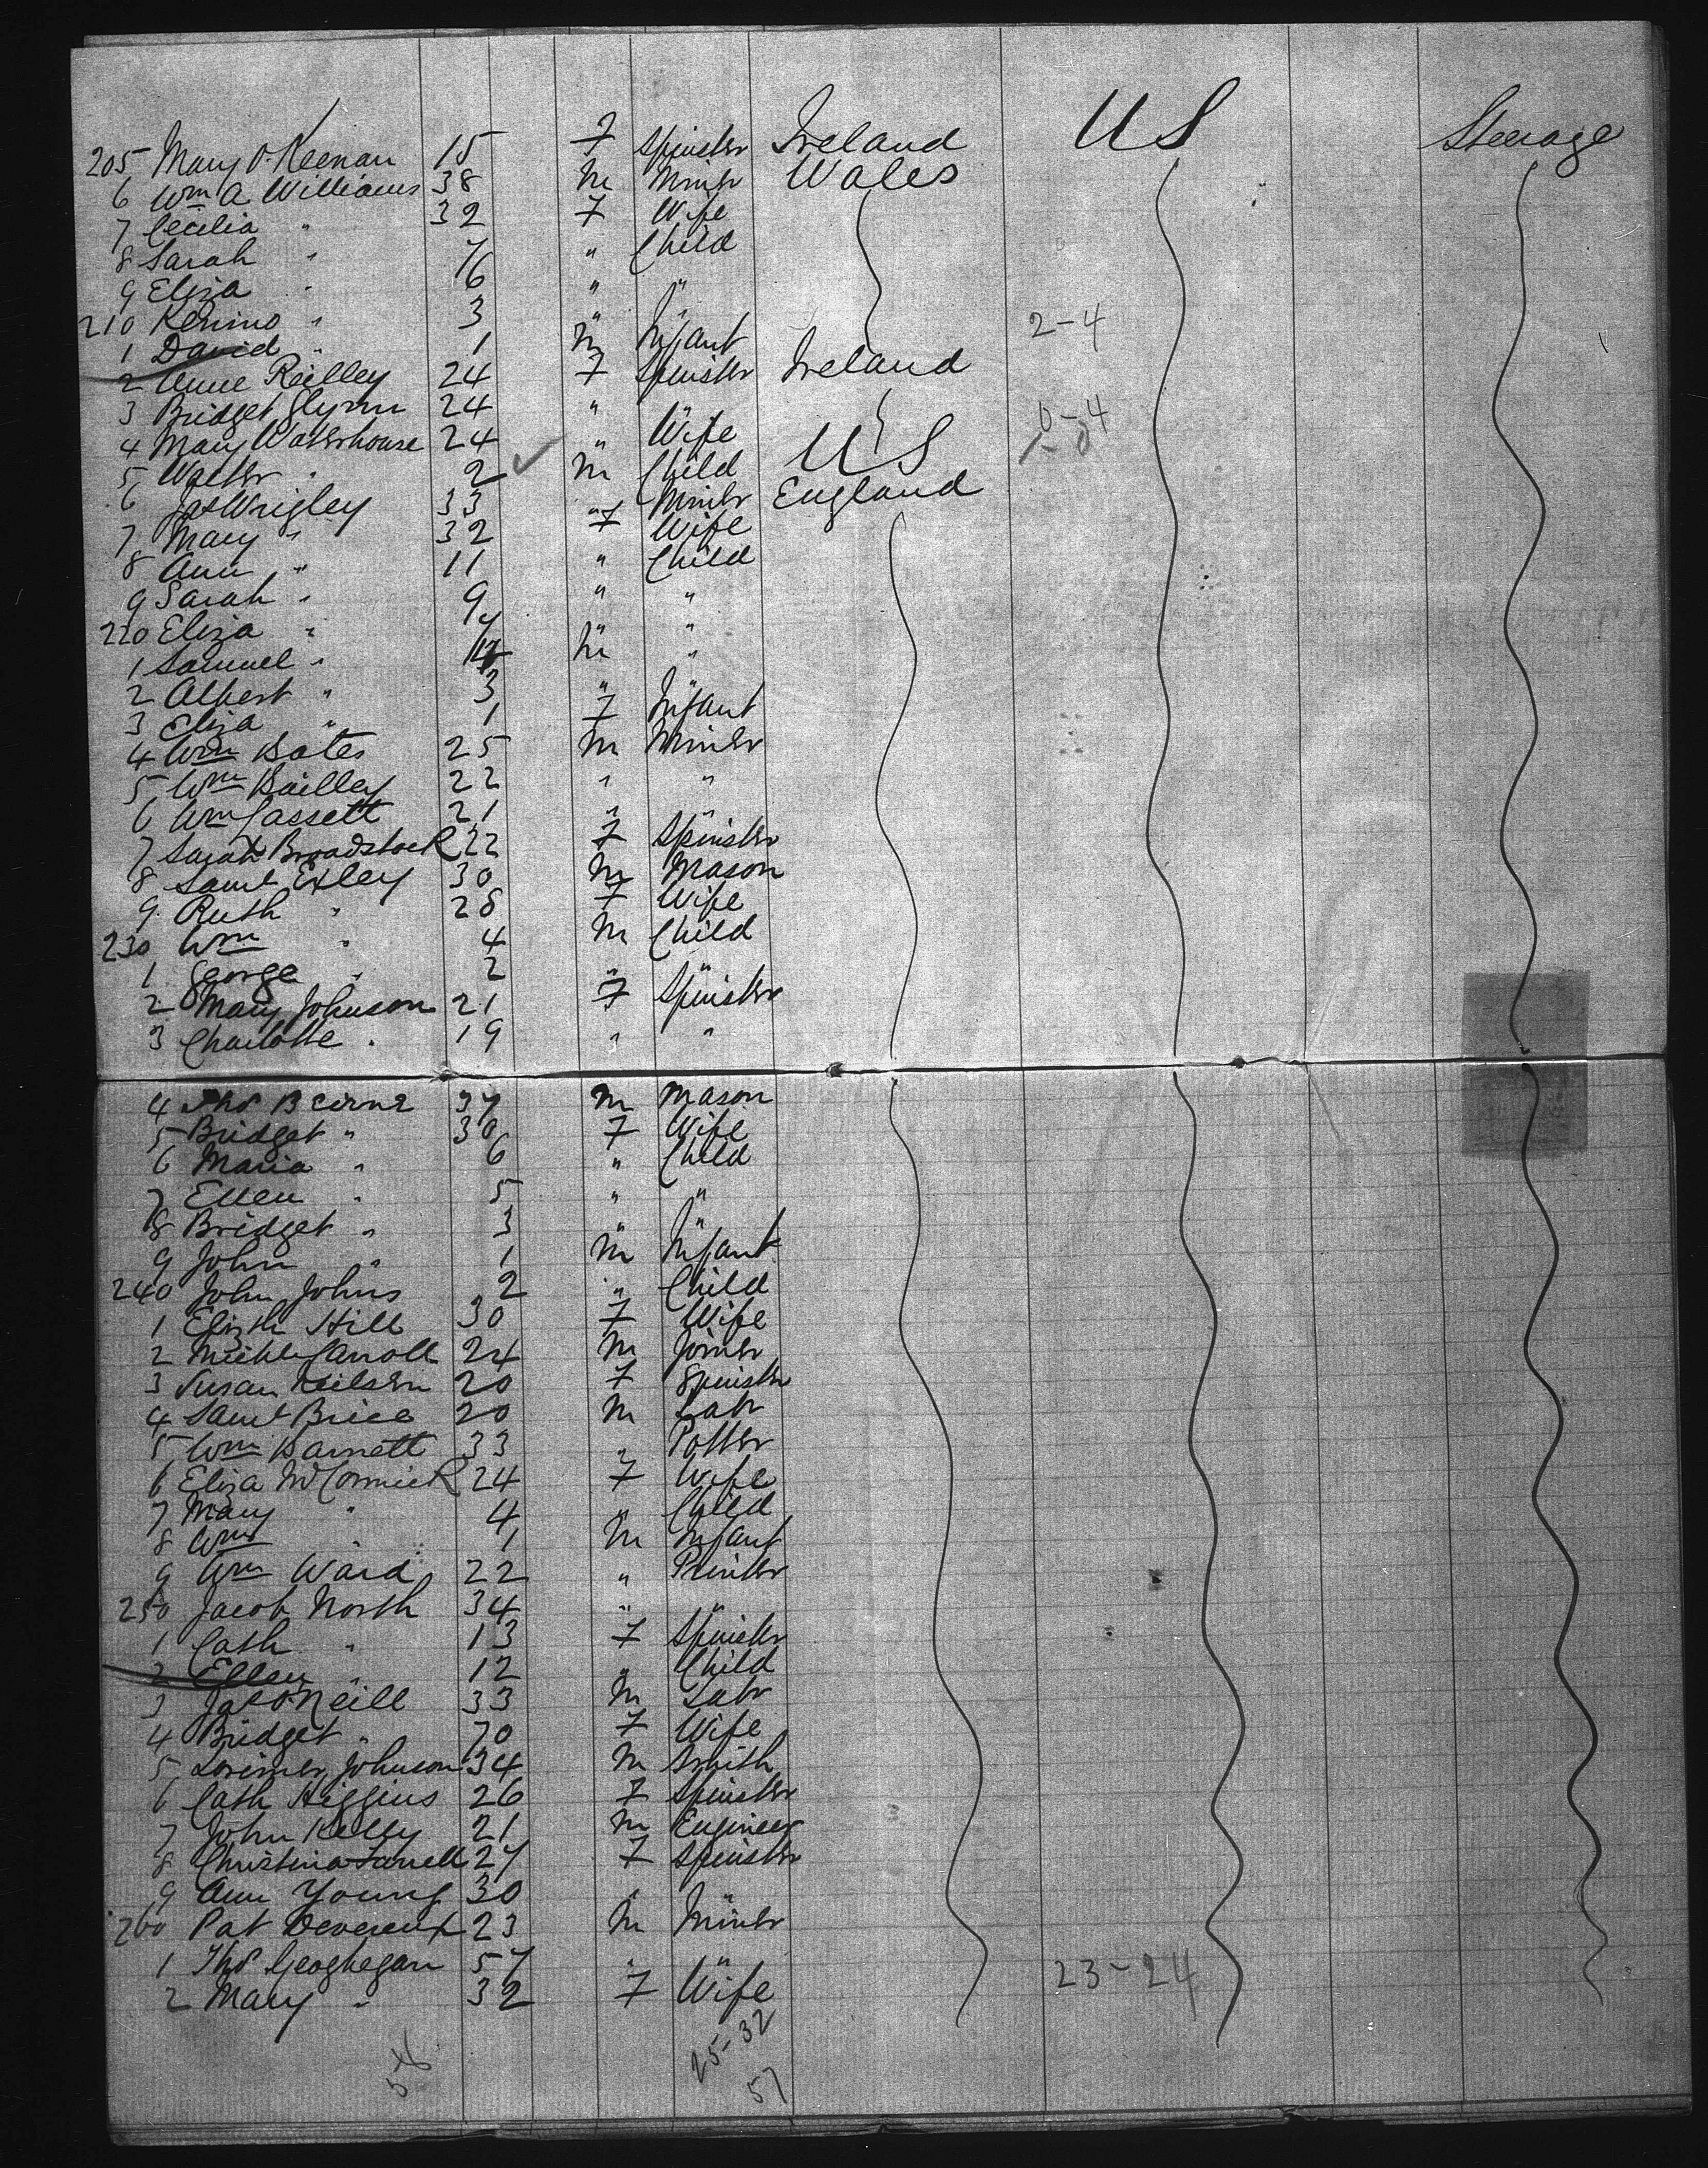 205 Mary O'Keenan 15 F Spinster Ireland US Steerage
6 Wm A Williams 38 M Miner Wales
7 Cecilia " 32 F Wife
8 Sarah " 7 " Child
9 Eliza " 6 " "
210 " 3 " "
1 David " 1 M Infant 2-4
2 Anne Reilley 24 F Spinster Ireland
3 Bridget Glynn 24 " "
4 Mary Waterhouse 24 " Wife US
5 Walter " 2 M Child
6 Jas Wrigley 33 " Miner England
7 Mary " 32 F Wife
8 Ann " 11 " Child
9 Sarah " 9 " "
220 Eliza " 7 " "
1 Samuel " M "
2 Albert " 3 " "
3 Eliza " 1 F Infant
4 Wm Bates 25 M Miner
5 Wm Bailley 22 " "
6 Wm Cassett 21 " "
7 Sarah Broadstock 22 F Spinster
8 Saml Exley 30 M Mason
9 Ruth " 28 F Wife
230 Wm " 4 M Child
1 George " 2 " "
2 Mary Johnson 21 F Spinster
3 Charlotte " 19 " "
4 Thos Beirne 37 M Mason
5 Bridget " 30 F Wife
6 Maria " 6 " Child
7 Ellen " 5 " "
8 Bridget " 3 " "
9 John " 1 M Infant
240 John Johns 2 " Child
1 Elizth Hill 30 F Wife
2 Michl Carroll 24 M Joiner
3 Susan Neilsen 20 F Spinster
4 Saml Brice 20 M Labr
5 Wm Barnett 33 " Potter
6 Eliza McCormick 24 F Wife
7 Mary " 4 " Child
8 Wm " 1 M Infant
9 Wm Ward 22 " Printer
250 Jacob North 34 " "
1 Cath " 13 F Spinster
2 Ellen " 12 " Child
3 Jas O'Neill 33 M Labr
4 Bridget " 70 F Wife
5 Johnson 34 M Smith
6 Cath Higgins 26 F Spinster
7 John Kelly 21 M Engineer
8 Christina Farrell 27 F Spinster
9 Ann Young 30 " "
260 Pat Devereux 23 M Miner
1 Thos Geoghegan 57 " " 23-24
2 Mary " 32 F Wife
25-32
57